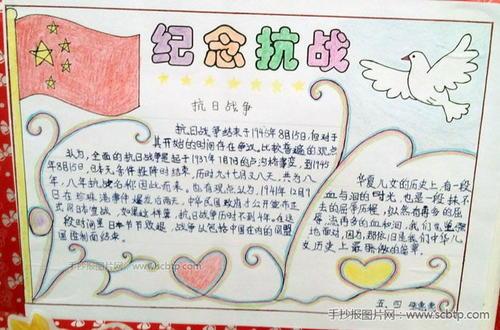 纪念抗战
抗日战争
抗日战争结束于1945年8月15日,但对于
其开始的时间存在争议。比较普遍的观点
认为,全面的抗日战争是起于1937年7月7日的卢沟桥事变,到1945
年8月15日,日本无条件投降时结束,历时九十七天又八天,共为八
年,八年抗战名称因此而来。也有观点认为,1941年12月9
日在珍珠港事件爆发后两天,中华民国政府才公开宣布正
式向日本宣战,如果这样算,抗日战争历时不到4年。在这
段时间里日本节节败退,战争以包括中国在内的同盟
国胜利而结束。
华夏儿女的历史上,有一段
血与泪的时光,也是一段抹不
去的屈辱历程,纵然有再多的屈
辱,流再多的血和泪,我们也要坚强
地面对,因为,那依旧是我们中华儿
女历史上最骄傲的篇章。
五、四
手抄报图片网--www.scbtp.com